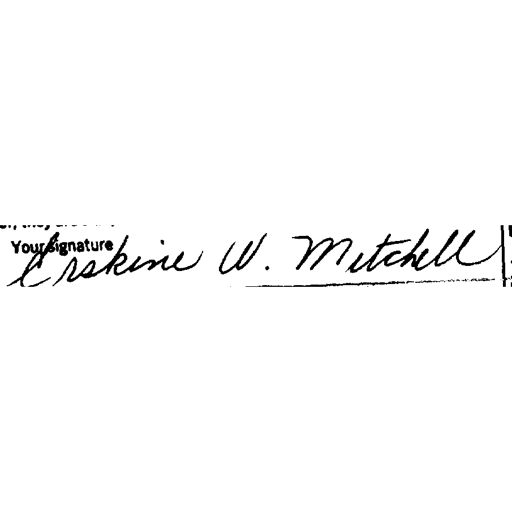 Your signature
Erskine W. Mitchell